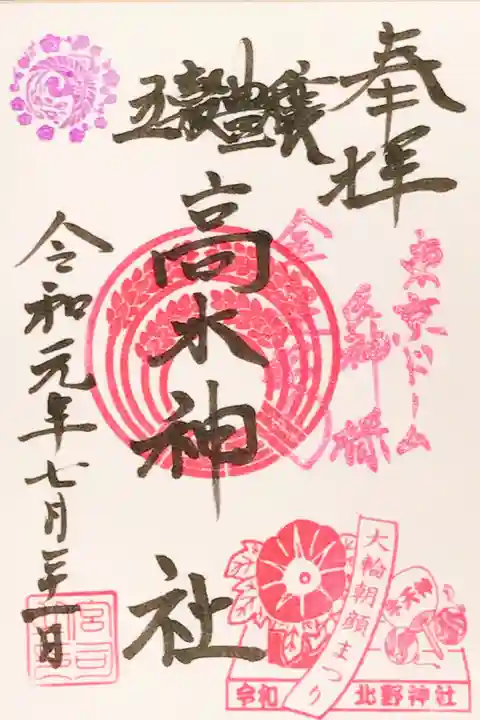 奉拝
五穀豊穣
高木神社
令和元年七月二十一日
東京ドーム
大輪朝顔まつり
牛天神
令和 北野神社